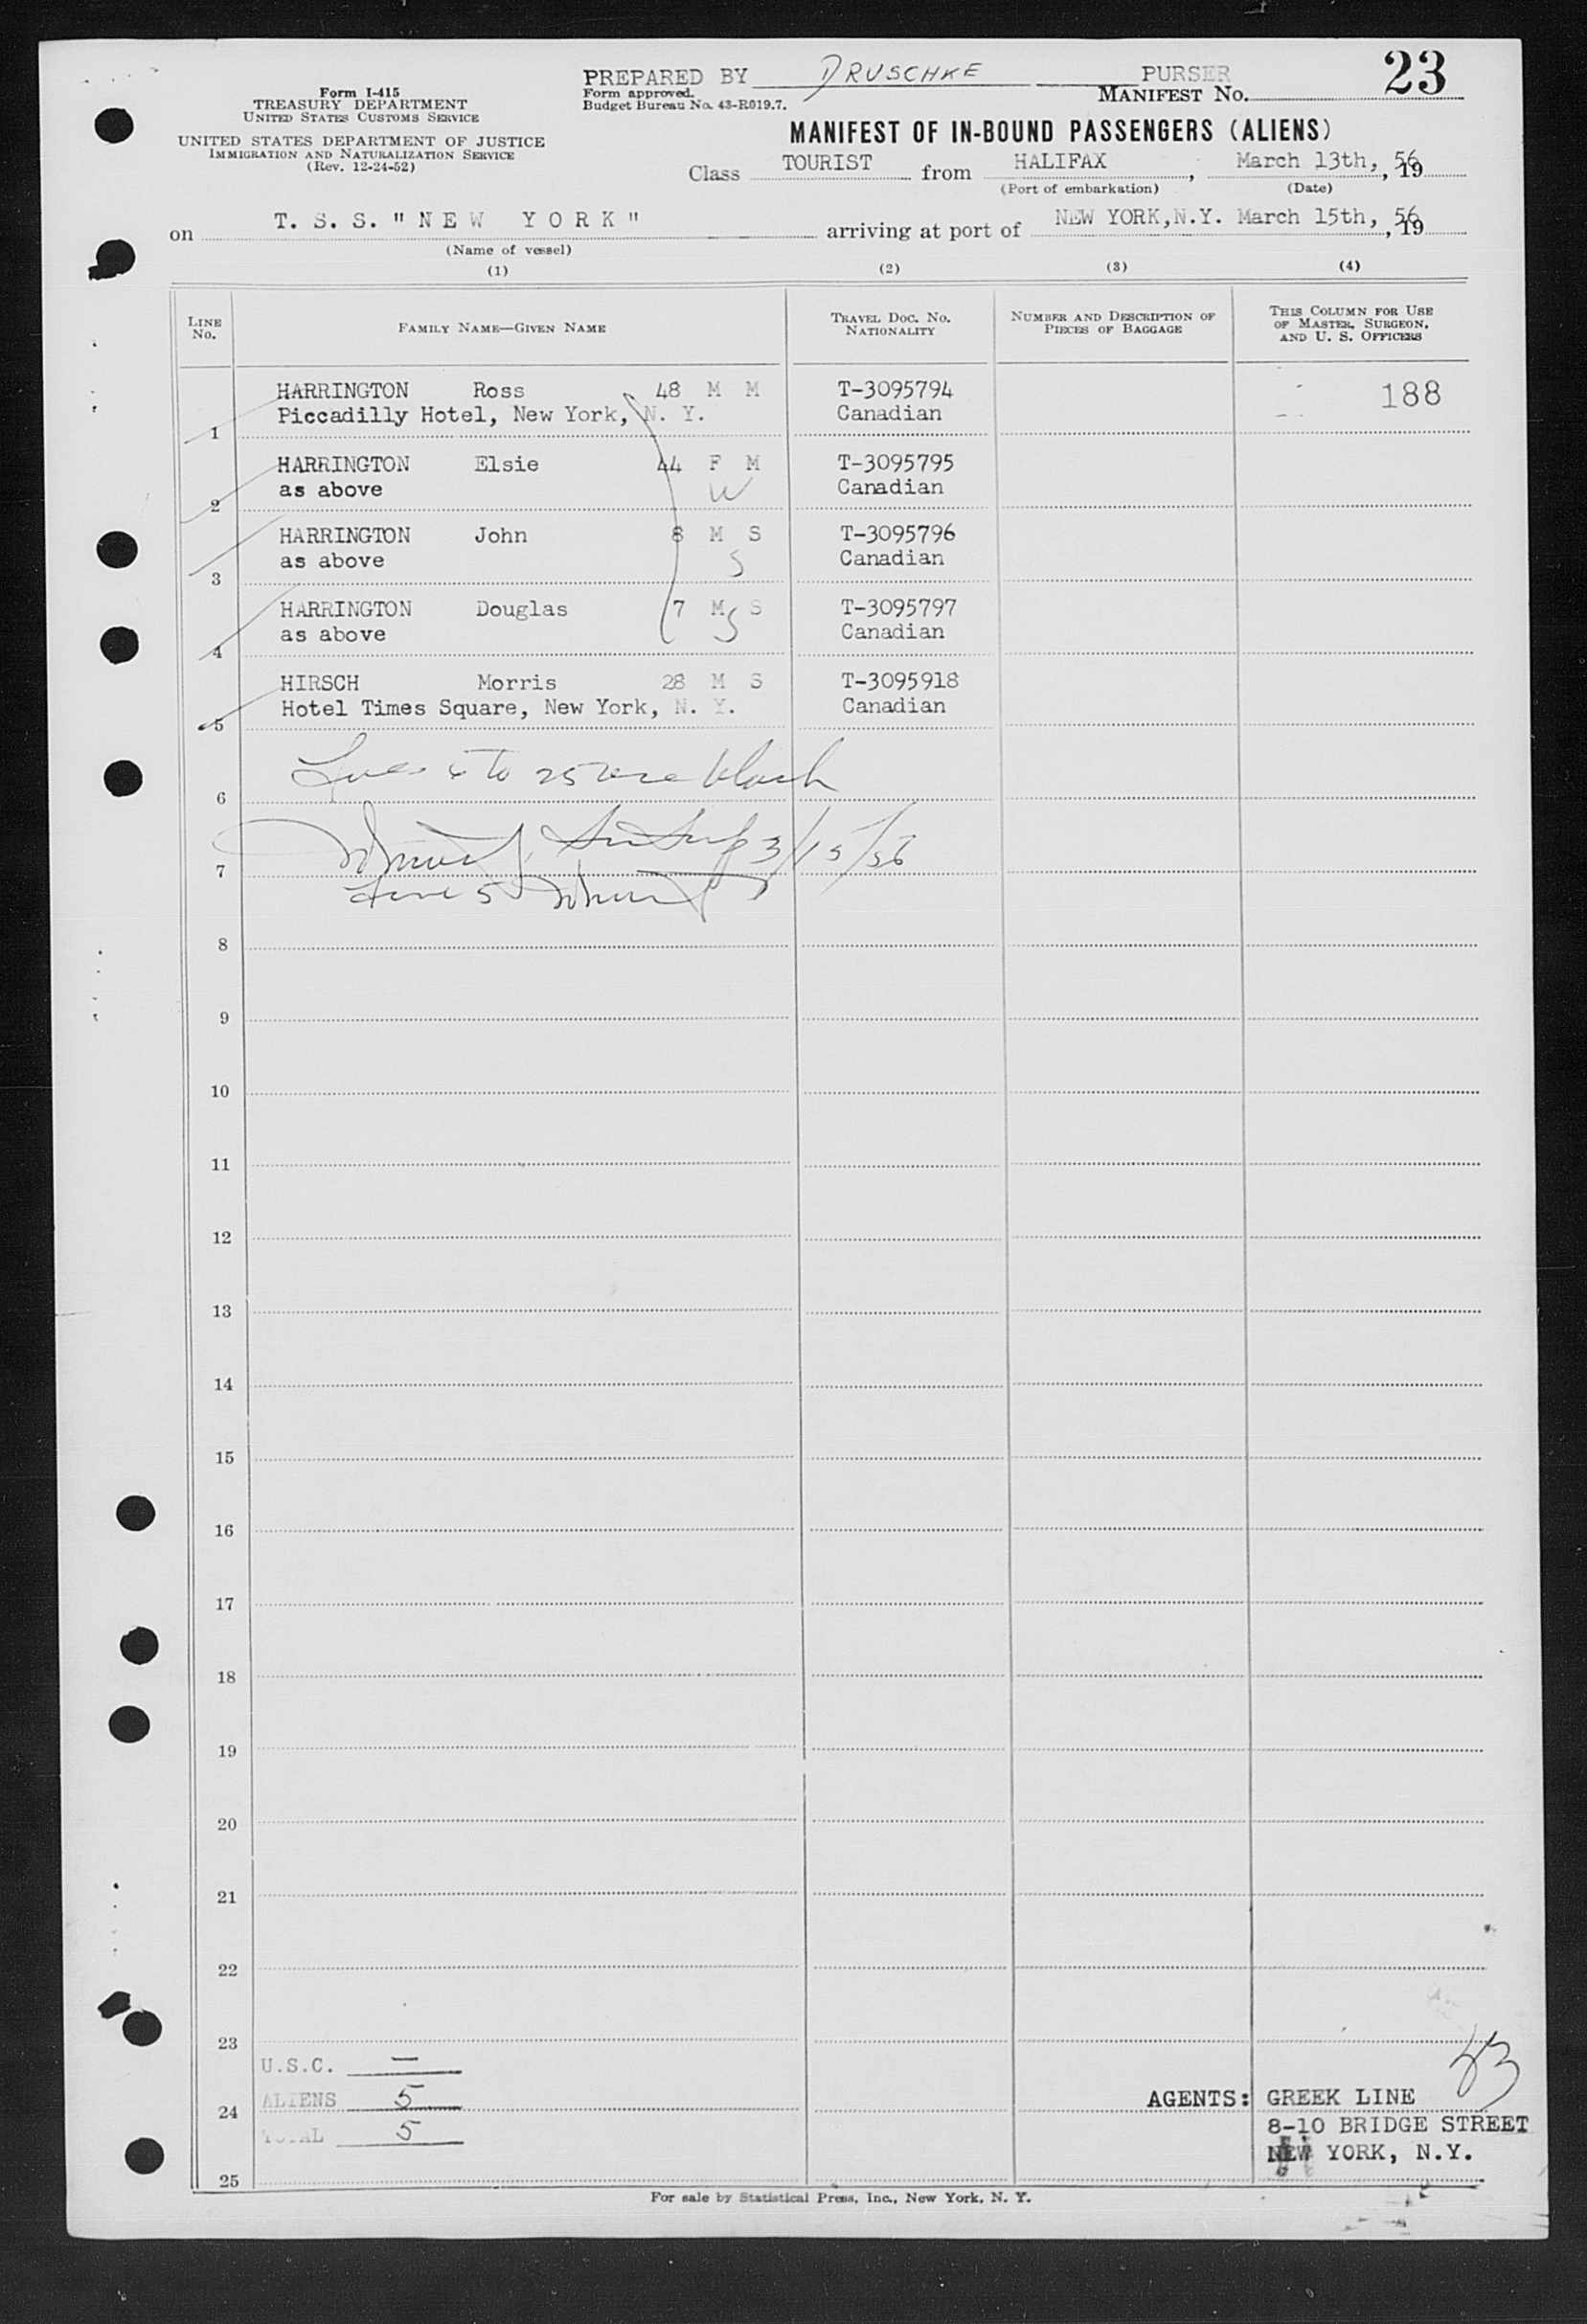 PREPARED BY DRUSCHKE PURSER 23
Form I-415
TREASURY DEPARTMENT
UNITED STATES CUSTOMS SERVICE
UNITED STATES DEPARTMENT OF JUSTICE
IMMIGRATION AND NATURALIZATION SERVICE
(Rev. 12-24-52)
Form approved.
Budget Bureau No. 43-R019.7.
MANIFEST No.
MANIFEST OF IN-BOUND PASSENGERS (ALIENS)
Class TOURIST from HALIFAX, March 13th, 56, 19
(Port of embarkation) (Date)
on T. S. S. "NEW YORK" arriving at port of NEW YORK,N.Y. March 15th, 56, 19
(Name of vessel)
(1) (2) (3) (4)
LINE No. FAMILY NAME—GIVEN NAME TRAVEL DOC. No. NATIONALITY NUMBER AND DESCRIPTION OF PIECES OF BAGGAGE THIS COLUMN FOR USE OF MASTER, SURGEON, AND U. S. OFFICERS
HARRINGTON Ross 48 M M T-3095794 188
Piccadilly Hotel, New York, N. Y. Canadian
1
HARRINGTON Elsie 44 F M T-3095795
as above W Canadian
2
HARRINGTON John 8 M S T-3095796
as above S Canadian
3
HARRINGTON Douglas 7 M S T-3095797
as above S Canadian
4
HIRSCH Morris 28 M S T-3095918
Hotel Times Square, New York, N. Y. Canadian
5
Lines 6 to 25 are blank
6
3/15/56
7
Line 5
8
9
10
11
12
13
14
15
16
17
18
19
20
21
22
23
U.S.C. —
43
ALIENS 5
AGENTS: GREEK LINE
24
8-10 BRIDGE STREET
TOTAL 5
NEW YORK, N.Y.
25
For sale by Statistical Press, Inc., New York, N. Y.